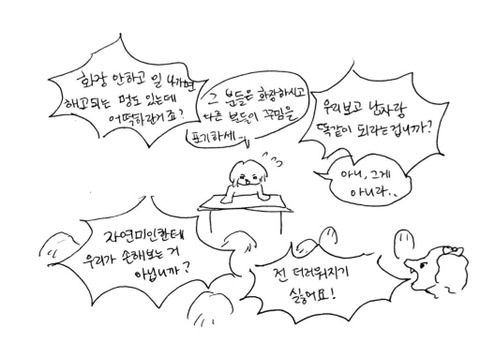 화장 안하고 일 나가면
해고되는 명도 있는데
어떡하란거죠?
그 분들은 화장하시고
다른 분들이 꾸밈을
포기하세—
우리보고 남자랑
똑같이 되라는겁니까?
아니, 그게
아니라..
자연미인한테
우리가 손해보는 거
아닙니까?
전 더러워지기
싫어요!